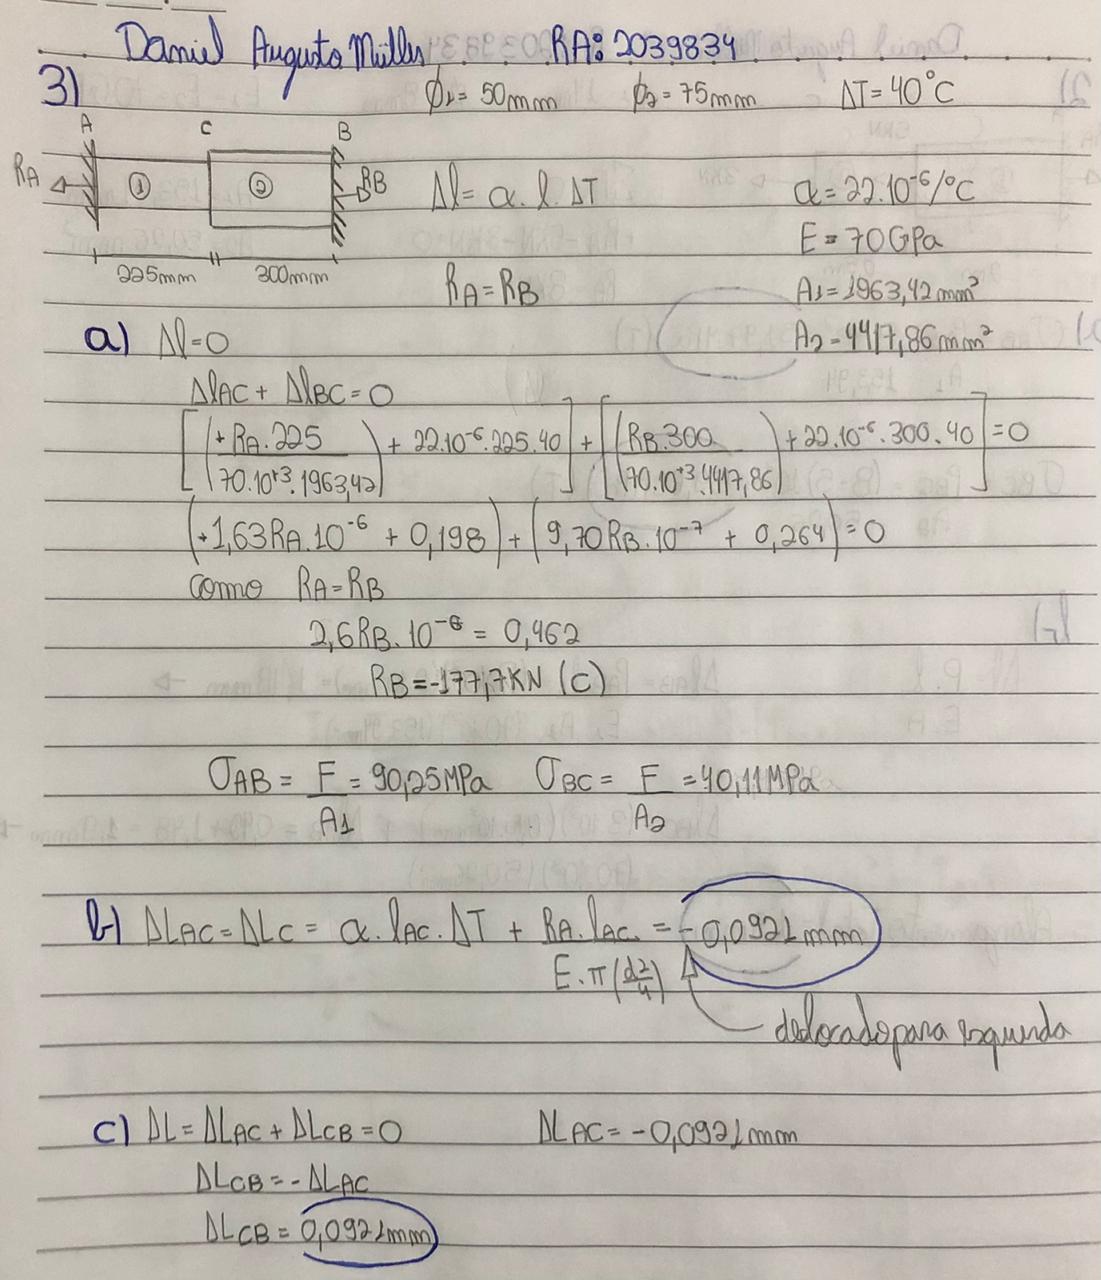 Daniel Augusto Müller RA: 2039834
3) ϕ1= 50mm ϕ2= 75mm ΔT= 40°C
A C B
RA ① ② RB Δl= α. l. ΔT α= 22.10⁻⁶/°C
E= 70GPa
225mm 300mm RA= RB A1= 1963,42mm²
a) Δl=0 A2= 4417,86mm²
ΔlAC + ΔlBC= 0
[(+RA.225 / 70.10⁺³.1963,42) + 22.10⁻⁶.225.40] + [(RB.300 / 70.10⁺³.4417,86) + 22.10⁻⁶.300.40] = 0
(+1,63RA.10⁻⁶ + 0,198) + (9,70RB.10⁻⁷ + 0,264) = 0
como RA= RB
2,6RB.10⁻⁶ = 0,462
RB= -177,7KN (C)
σAB= F/A1 = 90,25MPa σBC= F/A2 = 40,11MPa
b) ΔLAC= ΔLC= α. lAC. ΔT + RA.lAC / E.π(d²/4) = -0,0921mm
deslocado para esquerda
c) ΔL= ΔLAC + ΔLCB= 0 ΔLAC= -0,0921mm
ΔLCB= -ΔLAC
ΔLCB= 0,0921mm